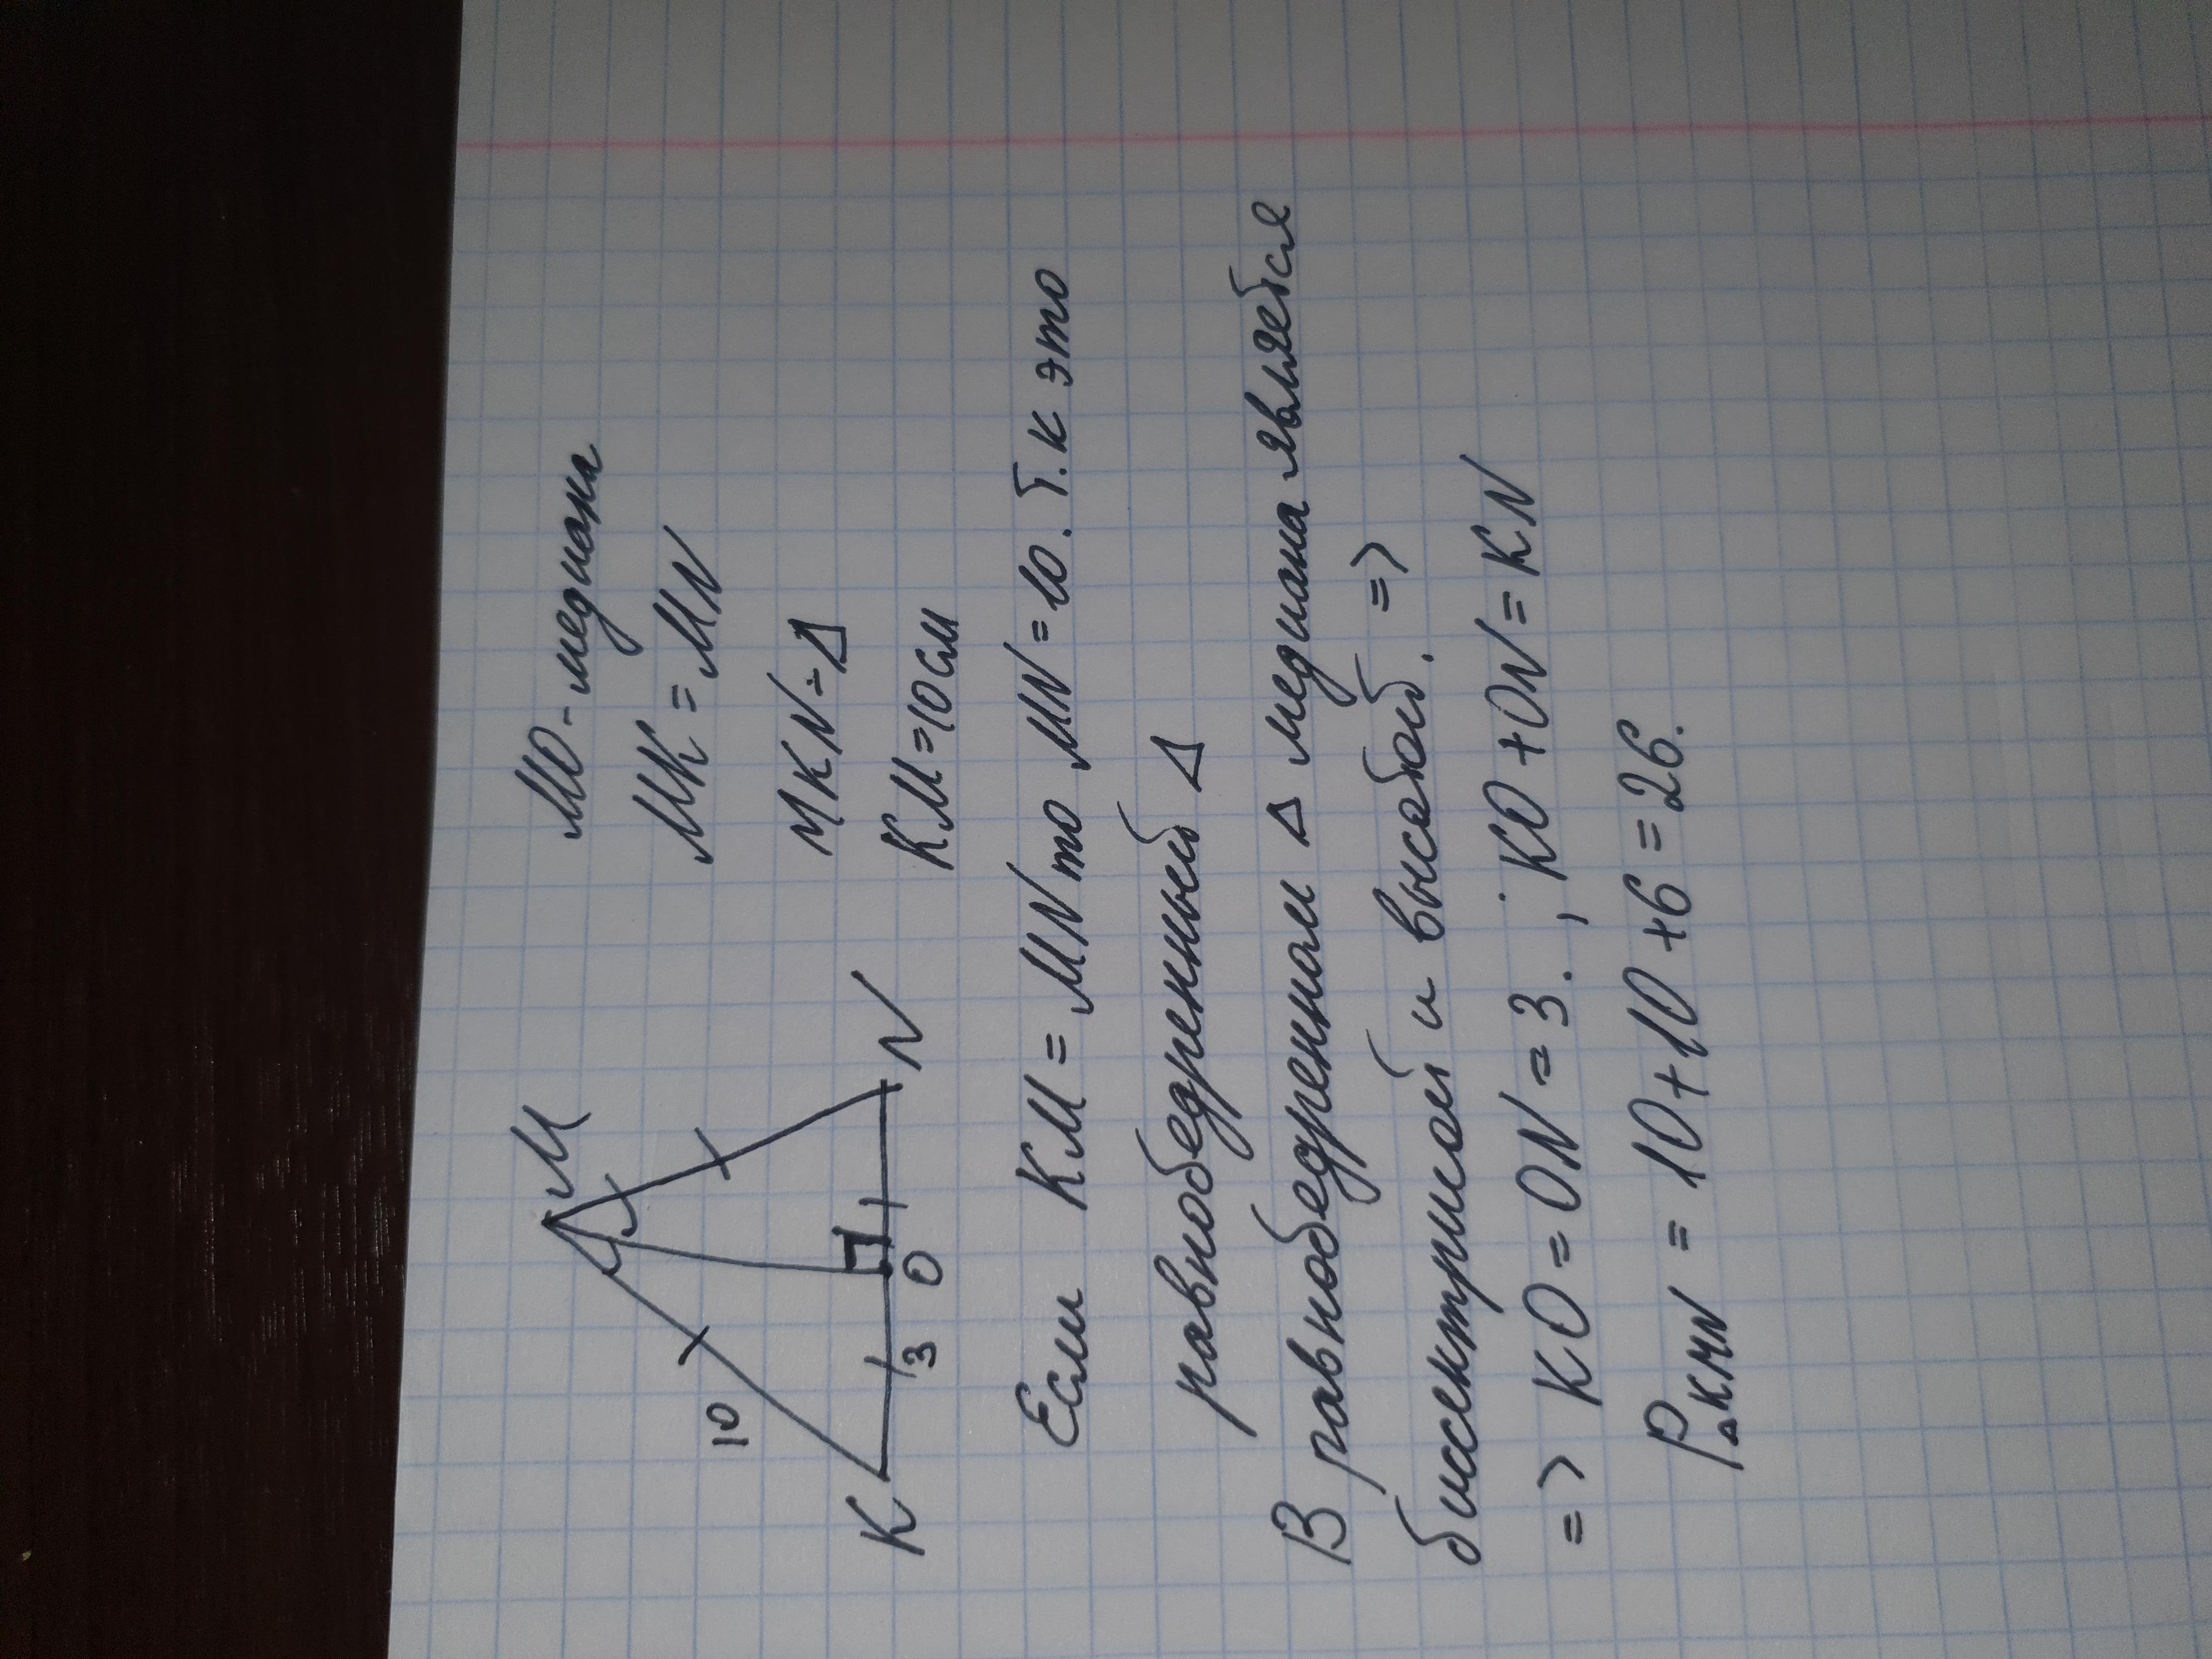 MO - медиана
MK = MN
MKN - Δ
KM = 10 см
M
10
K
3
O
N
Если KM = MN то MN = 10. т.к это
равнобедренный Δ
В равнобедренном Δ медиана является
биссектрисой и высотой. =>
=> KO = ON = 3. ; KO + ON = KN
PΔKMN = 10 + 10 + 6 = 26.